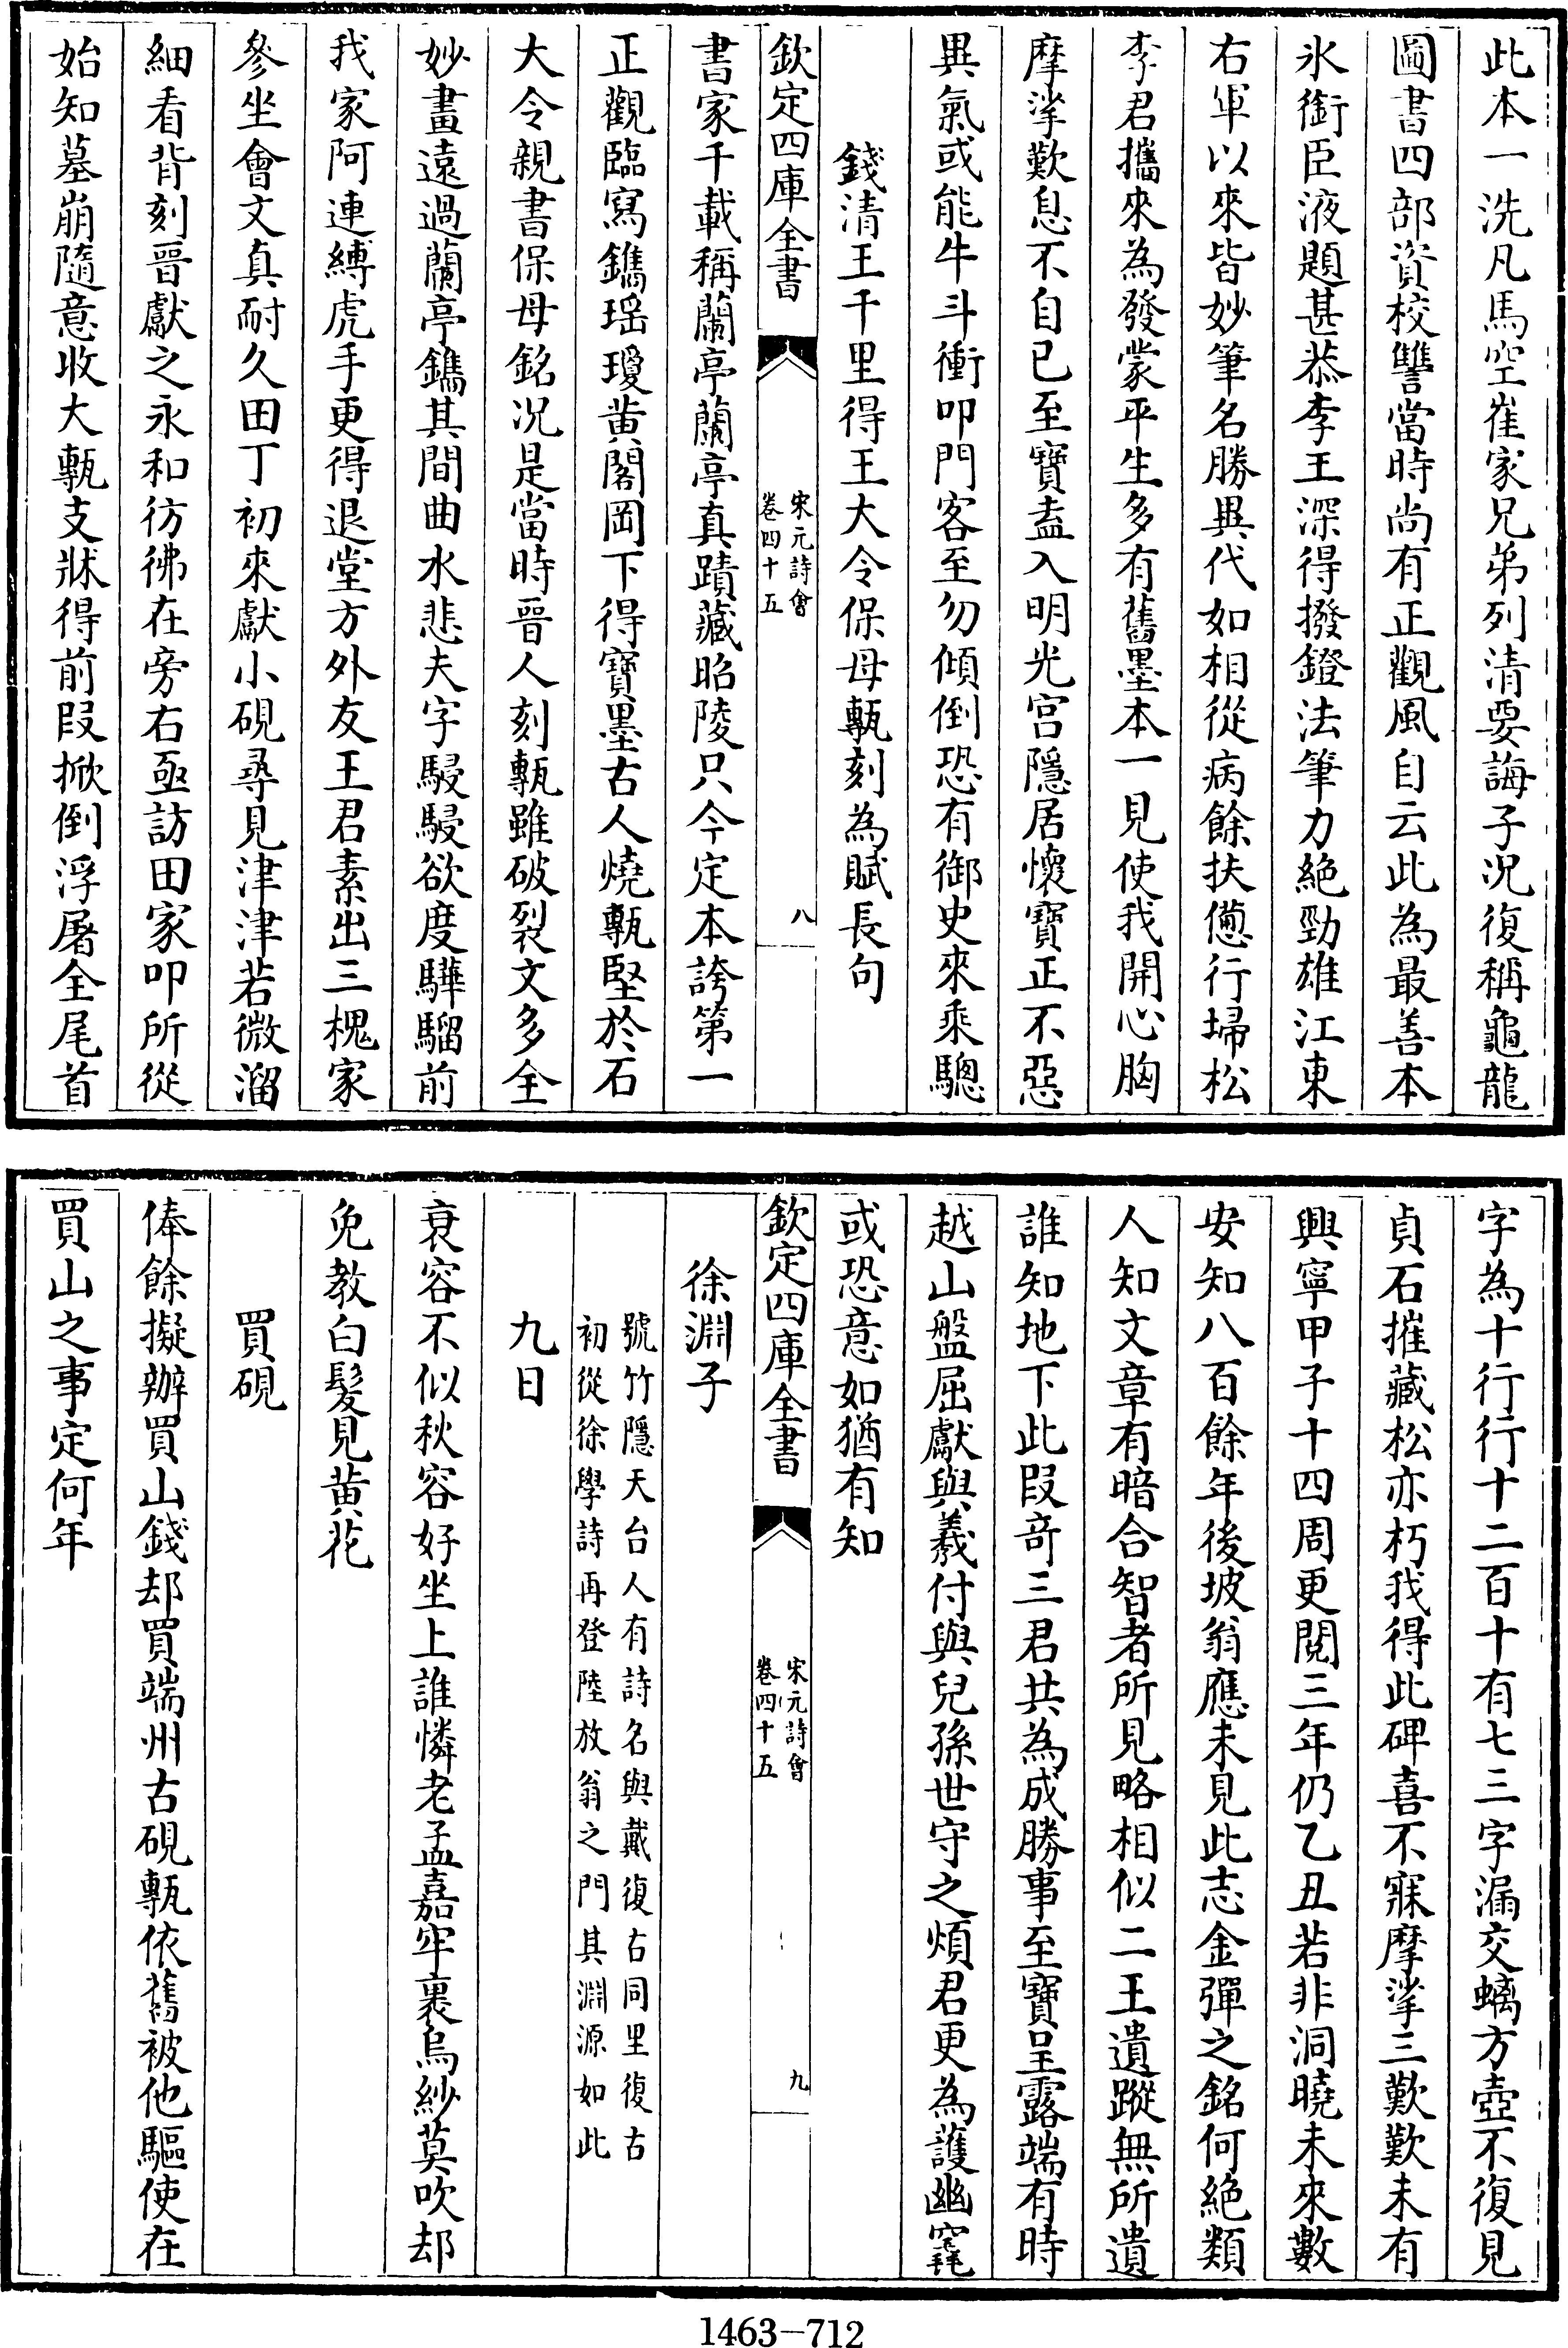 此本一洗凡馬空崔家兄弟列清要誨子况復稱龜龍
圖書四部資校讐當時尚有正觀風自云此為最善本
氷銜臣液題甚恭李王深得撥鐙法筆力絶勁雄江東
右軍以來皆妙筆名勝異代如相從病餘扶憊行埽松
李君攜來為發蒙平生多有舊墨本一見使我開心胸
摩挲歎息不自已至寶盍入明光宮隱居懷寶正不惡
異氣或能牛斗衝叩門客至勿傾倒恐有御史來乘驄
錢清王千里得王大令保母甎刻為賦長句
欽定四庫全書
宋元詩會
卷四十五
八
書家千載稱蘭亭蘭亭真蹟藏昭陵只今定本誇第一
正觀臨寫鐫瑶瓊黄閣岡下得寶墨古人燒甎堅於石
大令親書保母銘况是當時晉人刻甎雖破裂文多全
妙畫遠過蘭亭鐫其間曲水悲夫字駸駸欲度驊騮前
我家阿連縛虎手更得退堂方外友王君素出三槐家
參坐會文真耐久田丁初來獻小硯尋見津津若微溜
細看背刻晉獻之永和彷彿在旁右亟訪田家叩所從
始知墓崩隨意收大甎支牀得前段掀倒浮屠全尾首
字為十行行十二百十有七三字漏交螭方壺不復見
貞石摧藏松亦朽我得此碑喜不寐摩挲三歎歎未有
興寧甲子十四周更閱三年仍乙丑若非洞曉未來數
安知八百餘年後坡翁應未見此志金彈之銘何絶類
人知文章有暗合智者所見略相似二王遺蹤無所遺
誰知地下此段竒三君共為成勝事至寶呈露端有時
越山盤屈獻與羲付與兒孫世守之煩君更為護幽窀
或恐意如猶有知
欽定四庫全書
宋元詩會
卷四十五
九
徐淵子
號竹隱天台人有詩名與戴復古同里復古
初從徐學詩再登陸放翁之門其淵源如此
九日
衰容不似秋容好坐上誰憐老孟嘉牢裹烏紗莫吹却
免教白髮見黄花
買硯
俸餘擬辦買山錢却買端州古硯甎依舊被他驅使在
買山之事定何年
1463—712